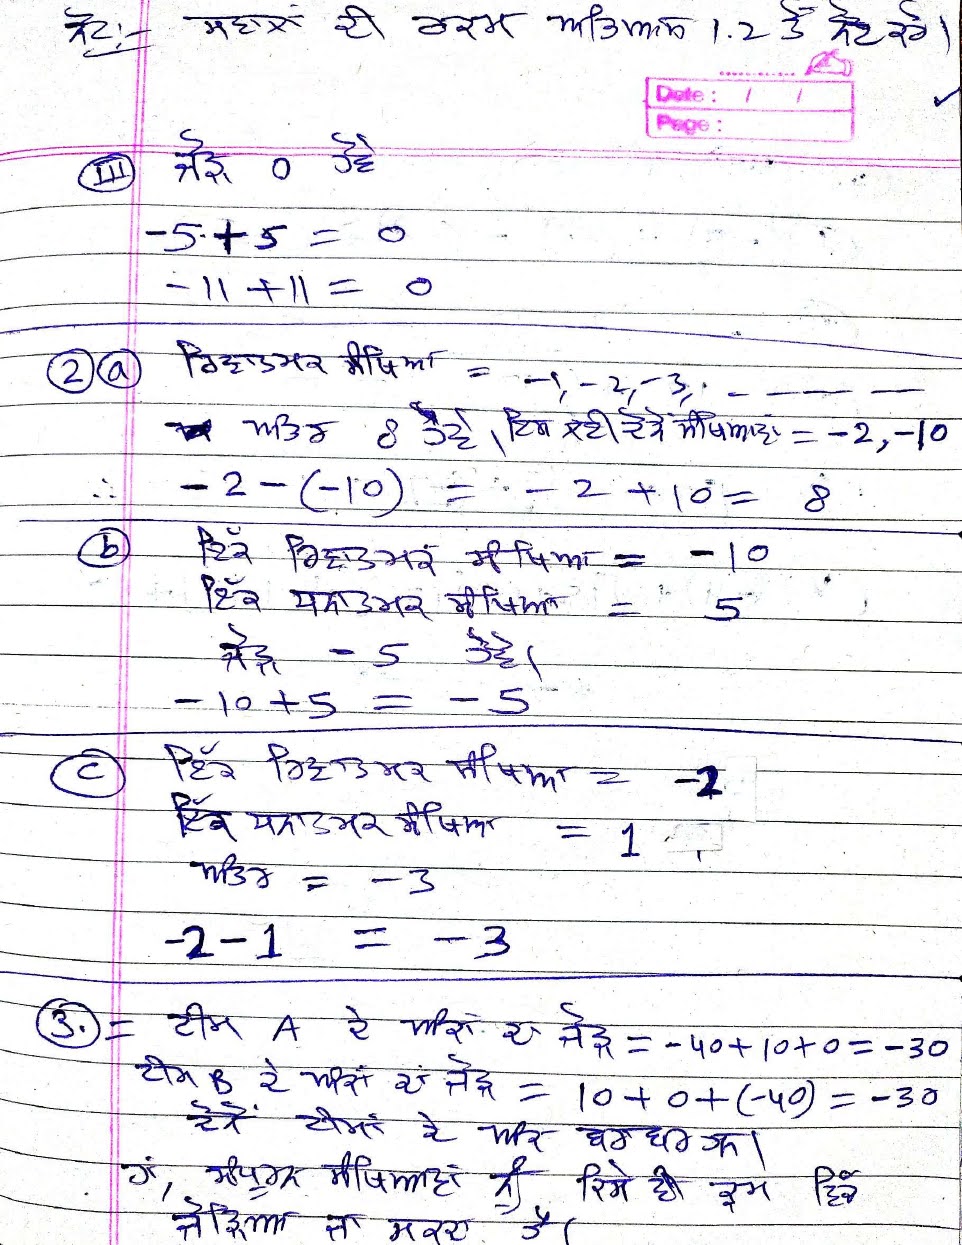 ਨੋਟ:- ਸਵਾਲਾਂ ਦੀ ਰਕਮ ਅਭਿਆਸ 1.2 ਤੋਂ ਨੋਟ ਕਰੋ।
Date : / /
Page :
(III) ਜੋੜ 0 ਹੋਵੇ
-5+5 = 0
-11+11 = 0
(2)(a) ਰਿਣਾਤਮਕ ਸੰਖਿਆ = -1, -2, -3, - - - -
ਅੰਤਰ 8 ਹੋਵੇ, ਇਸ ਲਈ ਦੋਨੋਂ ਸੰਖਿਆਵਾਂ = -2, -10
∴ -2-(-10) = -2+10 = 8
(b) ਇੱਕ ਰਿਣਾਤਮਕ ਸੰਖਿਆ = -10
ਇੱਕ ਧਨਾਤਮਕ ਸੰਖਿਆ = 5
ਜੋੜ -5 ਹੋਵੇ।
-10+5 = -5
(c) ਇੱਕ ਰਿਣਾਤਮਕ ਸੰਖਿਆ = -2
ਇੱਕ ਧਨਾਤਮਕ ਸੰਖਿਆ = 1
ਅੰਤਰ = -3
-2-1 = -3
(3.) = ਟੀਮ A ਦੇ ਅੰਕਾਂ ਦਾ ਜੋੜ = -40+10+0 = -30
ਟੀਮ B ਦੇ ਅੰਕਾਂ ਦਾ ਜੋੜ = 10+0+(-40) = -30
ਦੋਨੋਂ ਟੀਮਾਂ ਦੇ ਅੰਕ ਬਰਾਬਰ ਹਨ।
ਹਾਂ, ਸੰਪੂਰਨ ਸੰਖਿਆਵਾਂ ਨੂੰ ਕਿਸੇ ਵੀ ਕ੍ਰਮ ਵਿੱਚ
ਜੋੜਿਆ ਜਾ ਸਕਦਾ ਹੈ।